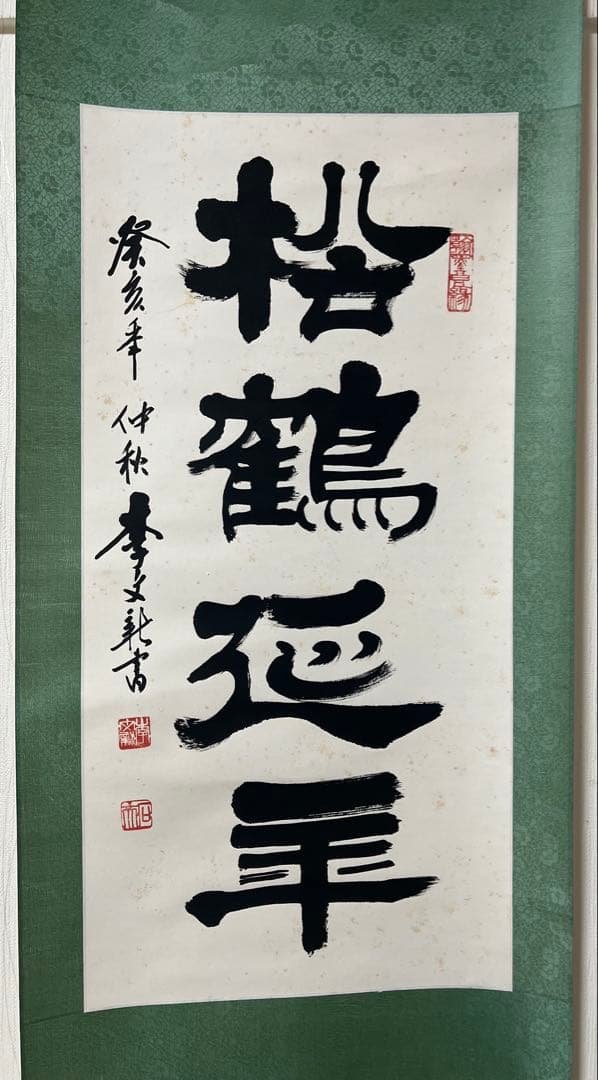 松鶴延年
癸亥年 仲秋 李文新書